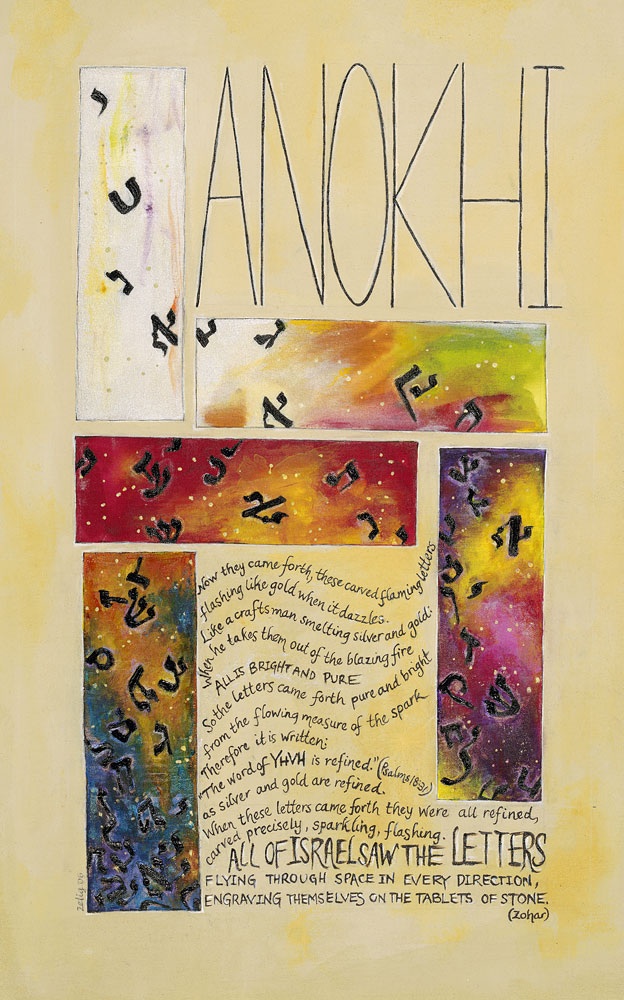 ANOKHI
Now they came forth, these carved flaming letters
flashing like gold when it dazzles.
Like a craftsman smelting silver and gold:
when he takes them out of the blazing fire
ALL IS BRIGHT AND PURE
So the letters came forth pure and bright
from the flowing measure of the spark
Therefore it is written:
"The word of YHVH is refined." (Psalms 18:31)
as silver and gold are refined.
When these letters came forth they were all refined,
carved precisely, sparkling, flashing.
ALL OF ISRAEL SAW THE LETTERS
FLYING THROUGH SPACE IN EVERY DIRECTION,
ENGRAVING THEMSELVES ON THE TABLETS OF STONE.
(Zohar)